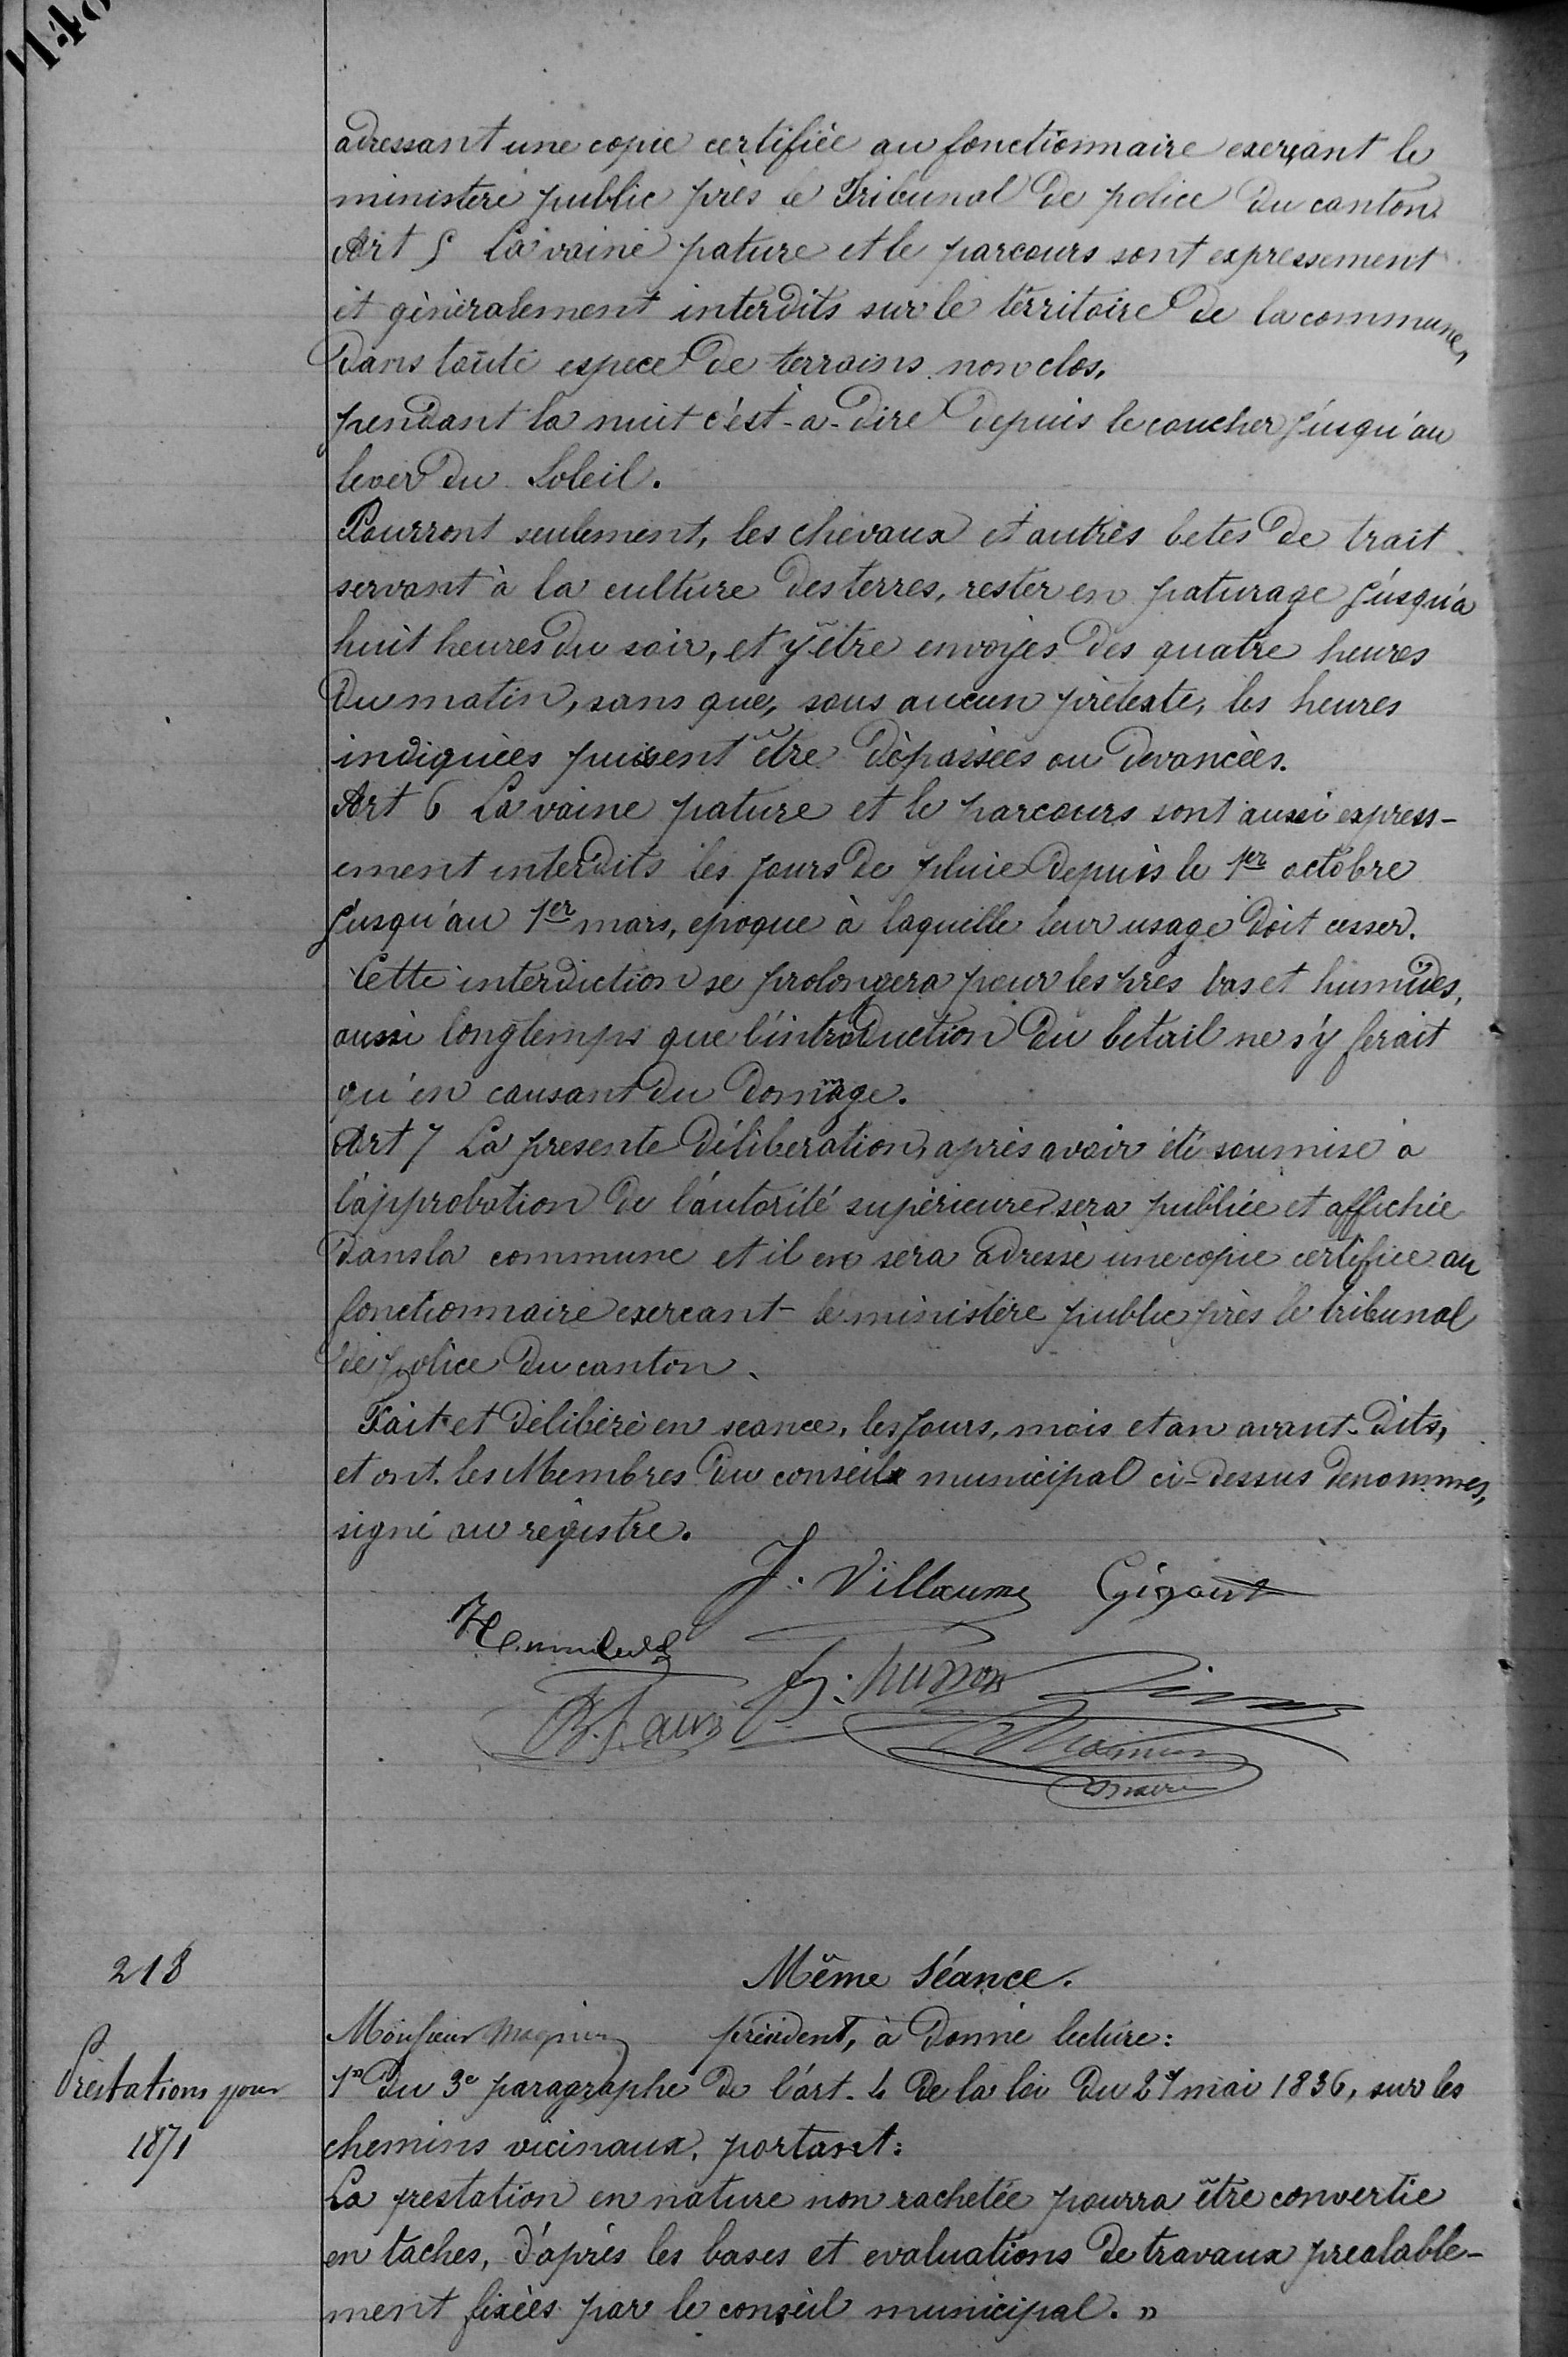 adressant une copie certifiée au fonctionnaire exerçant le
ministère public près le Tribunal de police du canton.
Art 5 La vaine pature et le parcours sont expressement
et généralement interdits sur le territoire de la commune,
dans toute espece de terrains non clos,
pendant la nuit c'est-a-dire depuis le coucher jusqu'au
lever du Soleil.
Pourront seulement, les chevaux et autres betes de trait
servant à la culture des terres, rester en paturage jusqu'a
huit heures du soir, et y être envoyés des quatre heures
du matin, sans que, sous aucun prétexte, les heures
indiquées puissent être dépassées ou devancées.
Art 6 La vaine pature et le parcours sont aussi express-
ement interdits les jours de pluie depuis le 1er octobre
jusqu'au 1er mars, epoque à laquelle leur usage doit cesser.
Cette interdiction se prolongera pour les pres bas et humides,
aussi longtemps que l'introduction du betail ne s'y ferait
qu'en causant du domage.
Art 7 La presente déliberation, après avoir été soumise à
l'approbation de l'autorité supérieure sera publiée et affichée
dans la commune et il en sera adressé une copie certifiée au
fonctionnaire exercant le ministère public près le tribunal
de police du canton.
Fait et délibéré en seance, les jours, mois et an avant-dits,
et ont les Membres du conseil municipal ci-dessus denommés,
signé au registre.
J. Villaume Gigout
J. husson
maire
218
Même Séance.
Monsieur Magnier président, à donné lecture:
Préstations pour
1871
1° Du 3e paragraphe de l'art. 4 de la loi du 21 mai 1836, sur les
chemins vicinaux, portant:
La prestation en nature non rachetée pourra être convertie
en taches, d'après les bases et evaluations de travaux prealable-
ment fixées par le conseil municipal. »